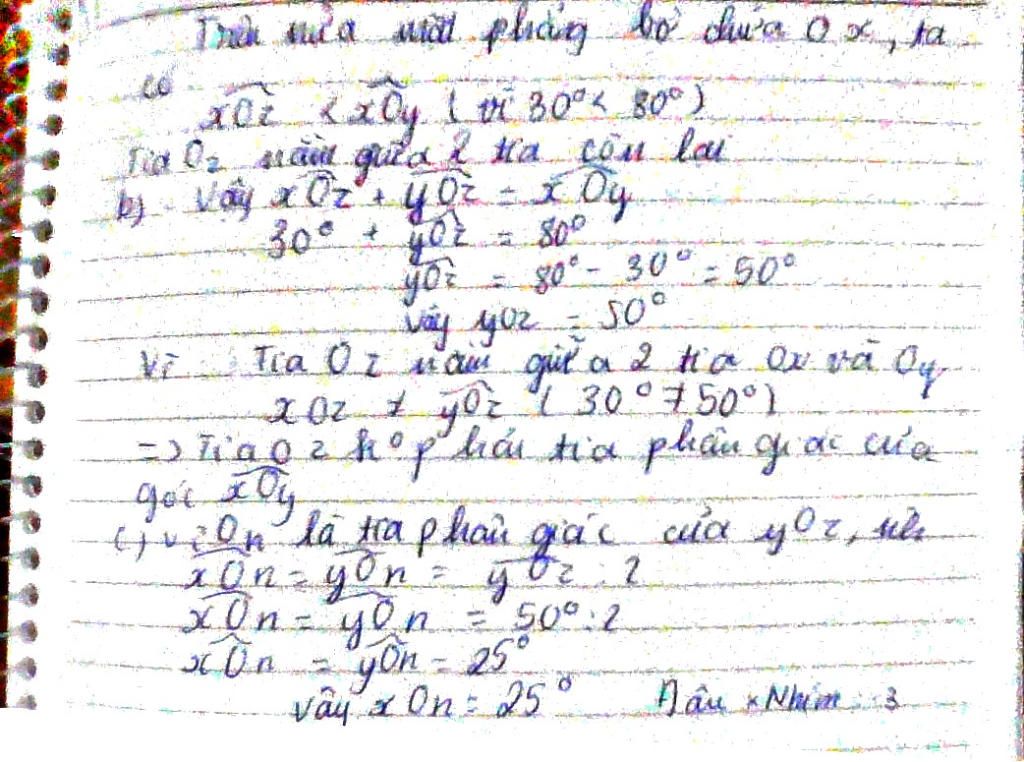 Trên nửa mặt phẳng bờ chứa Ox, ta
có
xOz < xOy ( vì 30° < 80° )
Tia Oz nằm giữa 2 tia còn lại
b) Vậy xOz + yOz = xOy
30° + yOz = 80°
yOz = 80° - 30° = 50°
Vậy yOz = 50°
Vì Tia Oz nằm giữa 2 tia Ox và Oy
xOz ≠ yOz ( 30° ≠ 50° )
=> Tia Oz k° phải tia phân giác của
góc xOy
c) vì On là tia phân giác của yOz, nên
xOn = yOn = yOz : 2
xOn = yOn = 50° : 2
xOn = yOn = 25°
vậy xOn = 25° : 3